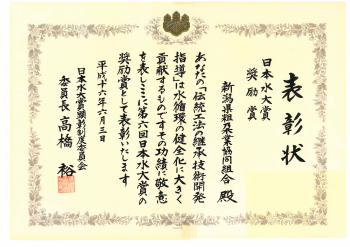 表彰状
日本水大賞
奨励賞
新潟県粗朶業協同組合 殿
あなたの「伝統工法の継承技術開発
指導」は水循環の健全化に大きく
貢献するものですその功績に敬意
を表しここに第六回日本水大賞の
奨励賞として表彰いたします
平成十六年六月三日
日本水大賞顕彰制度委員会
委員長 高橋 裕